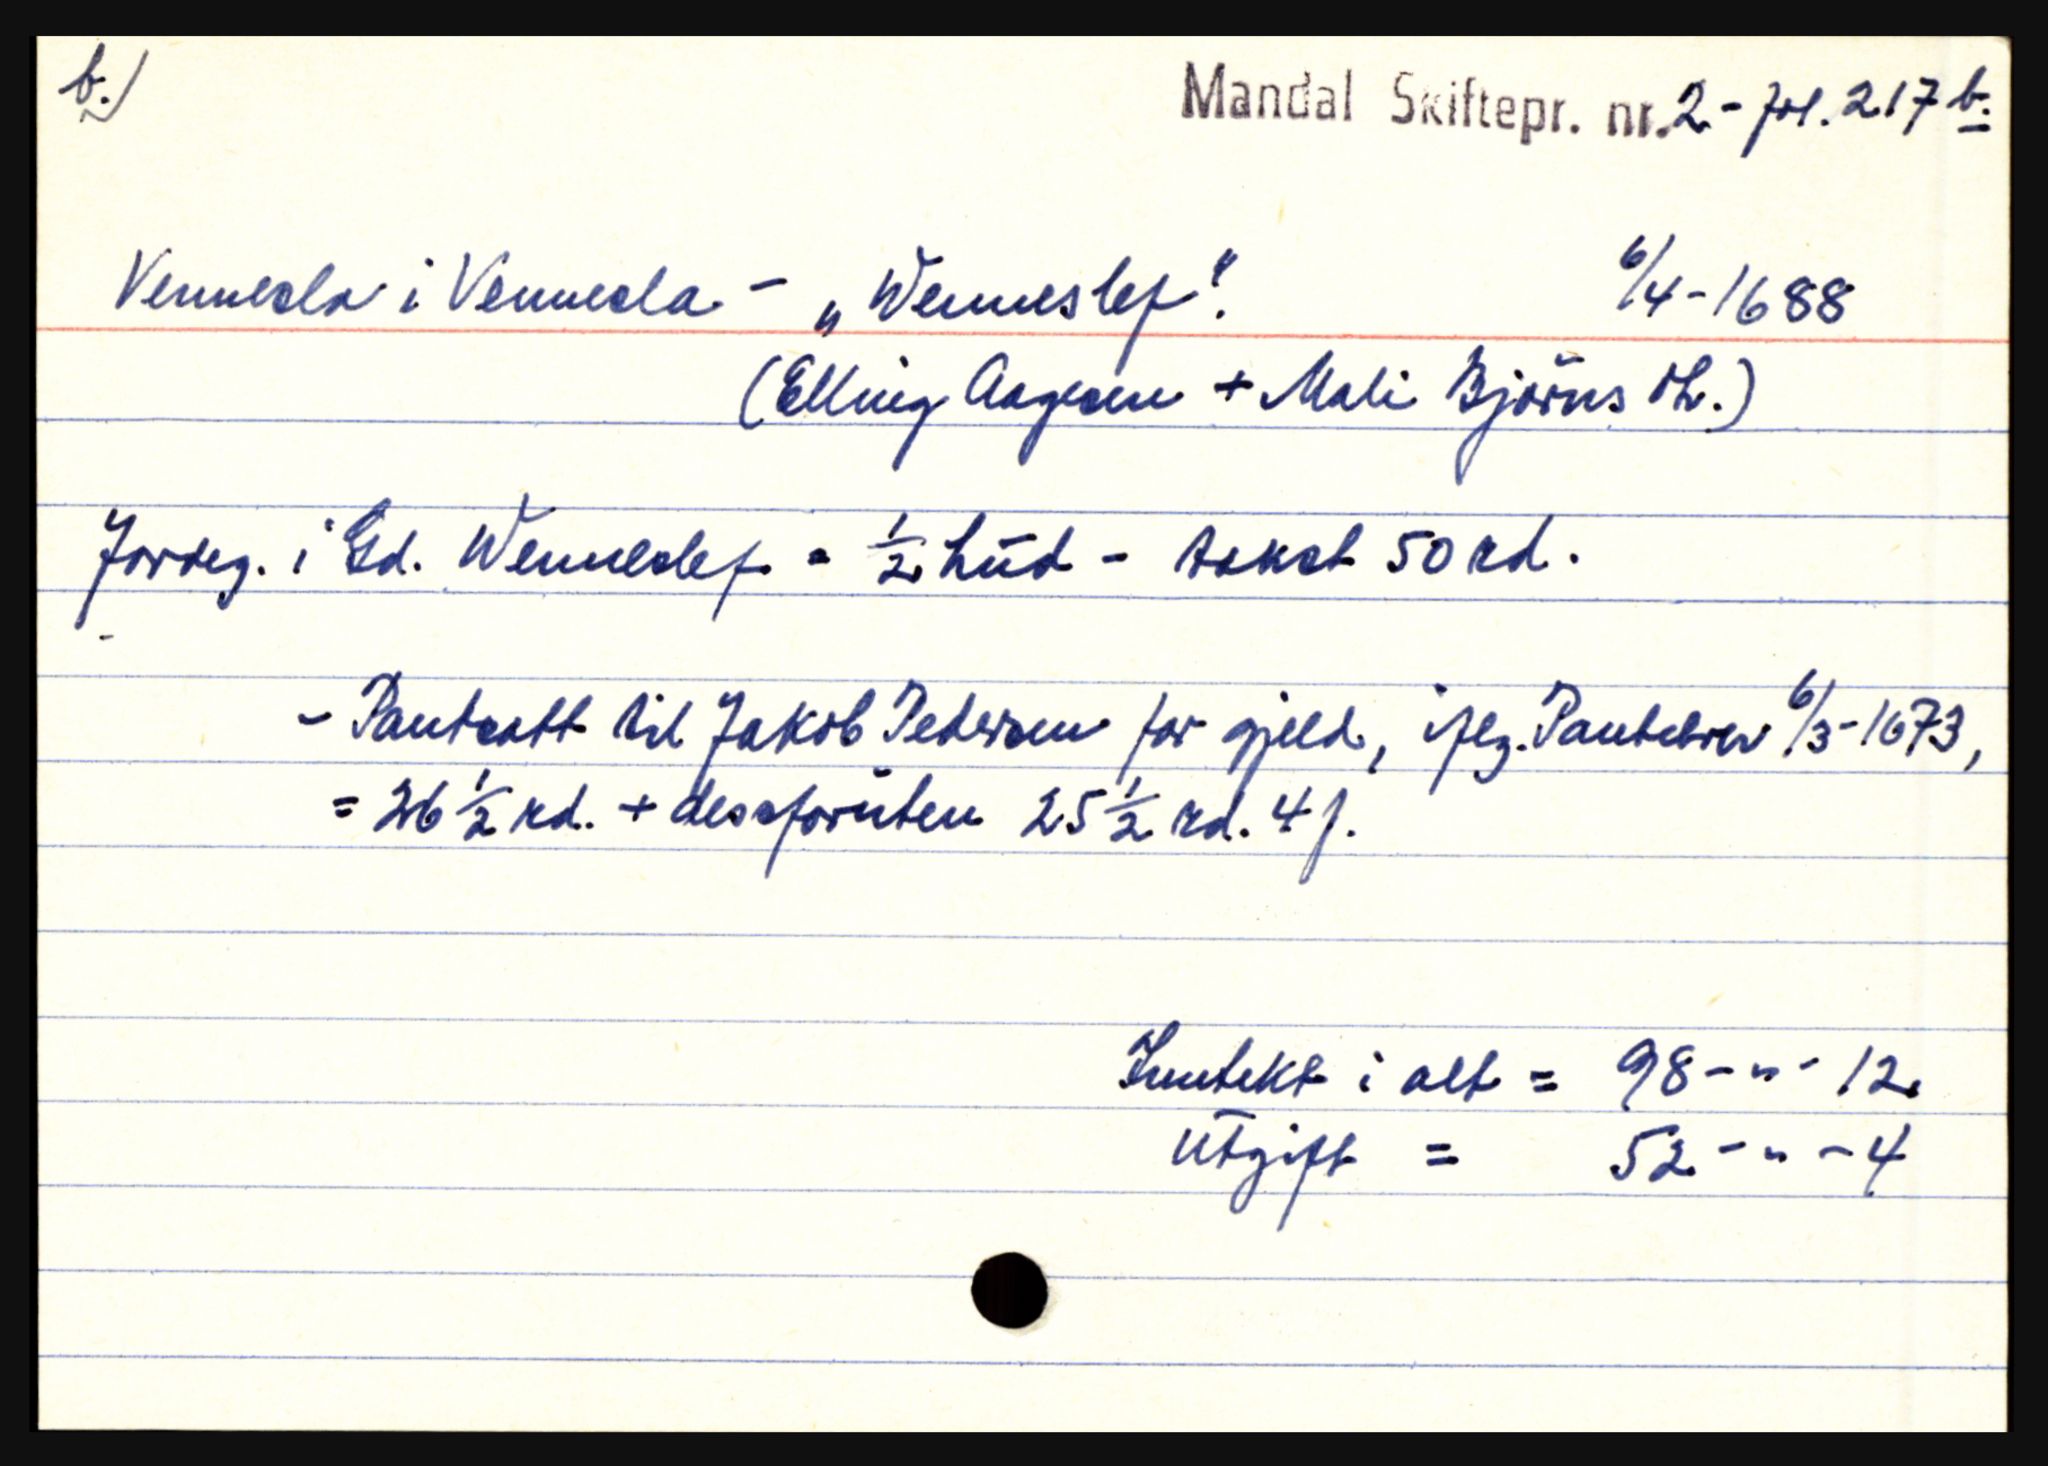 b.)
Mandal Skiftepr. nr. 2 - fol. 217 b.
Vennesla i Vennesla - „Wenneslef". 6/4-1688
(Elling Aagesen + Mali Björns dtr.)
Jordeg. i Gd. Wenneslef = 1/2 hud - takst 50 rd.
- Pantsatt til Jakob Pedersen for gjeld, iflg. Pantebrev 6/3-1673,
= 26 1/2 rd. + dessforuten 25 1/2 rd. 4 s.
Inntekt i alt = 98 - " - 12.
Utgift = 52 - " - 4